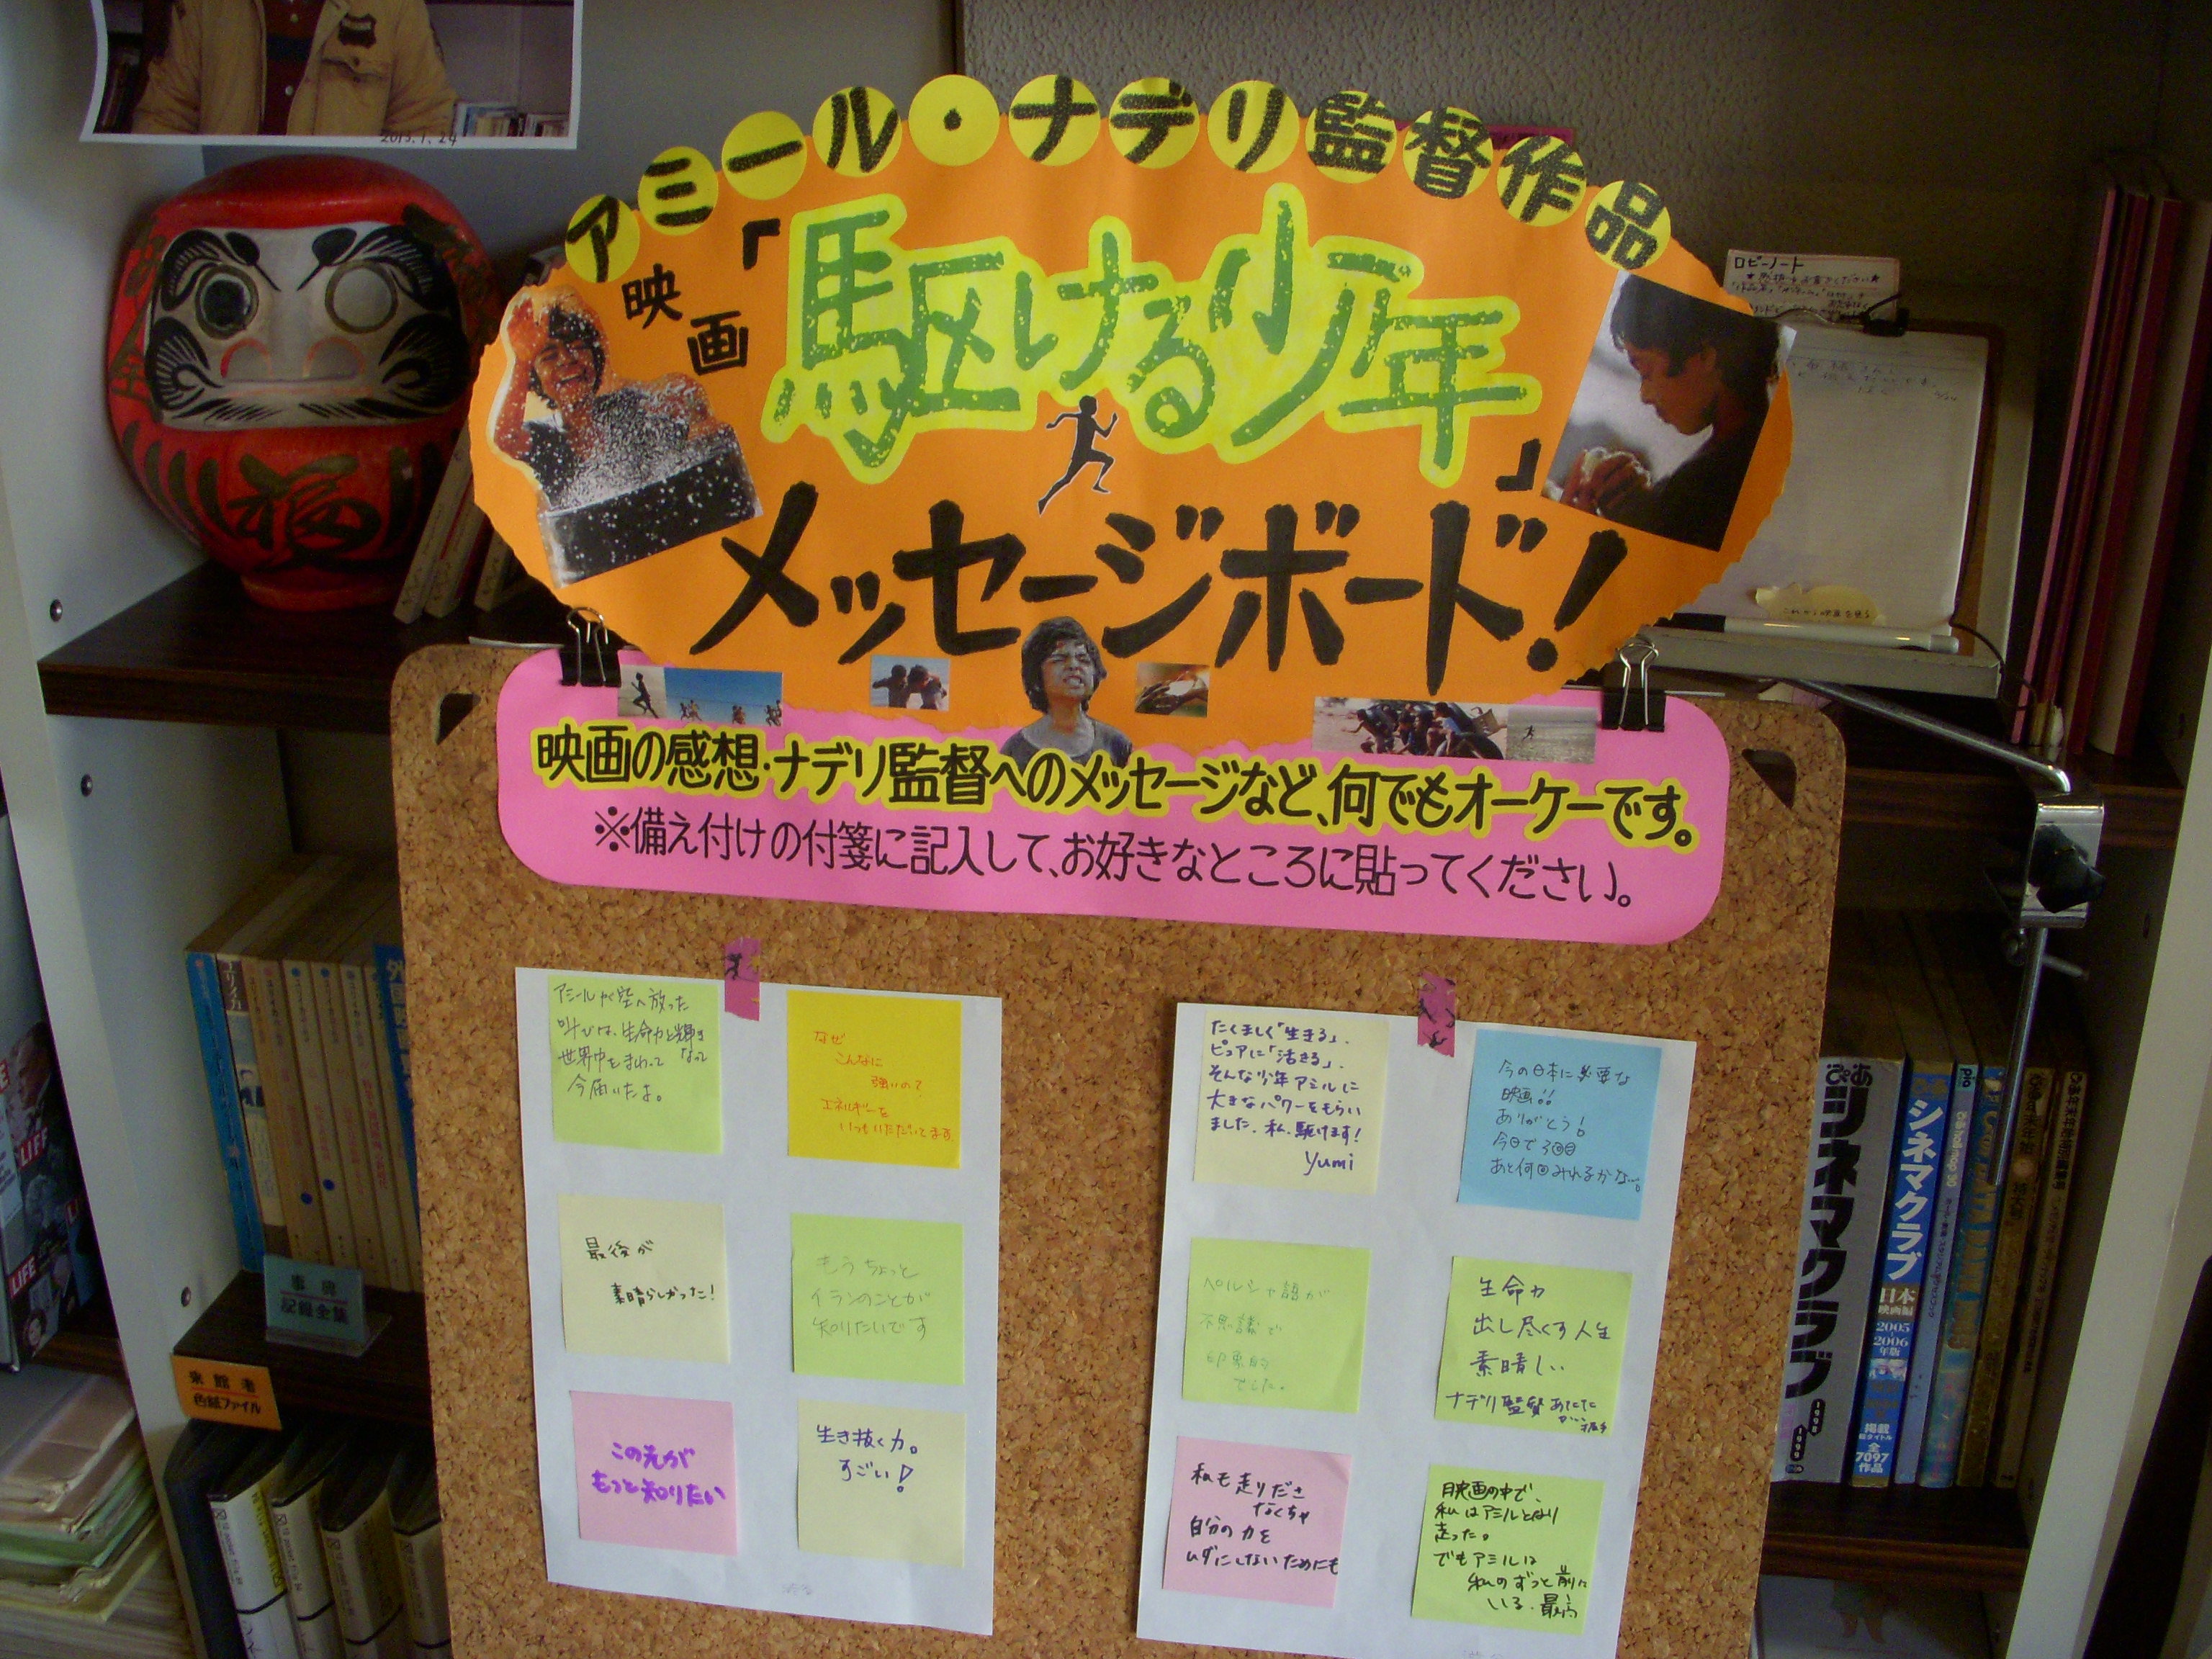 2013.1.24
アミール・ナデリ監督作品
映画
「駆ける少年」
メッセージボード!
映画の感想・ナデリ監督へのメッセージなど、何でもオーケーです。
※備え付けの付箋に記入して、お好きなところに貼ってください。
ロビーノート
福
アミールが空へ放った
叫びは、生命力と輝き
世界中をまわって なって
今届いたよ。
なぜ
こんなに
強いの?
エネルギーを
いつもいただいてます。
最後が
素晴らしかった!
もうちょっと
イランのことが
知りたいです
この先が
もっと知りたい
生き抜く力。
すごい!
たくましく「生きる」、
ピュアに「活きる」、
そんな少年アミルに
大きなパワーをもらい
ました。私、駆けます!
Yumi
今の日本に必要な
映画!!
ありがとう!
今日で3回目
あと何回みれるかな…。
ペルシャ語が
不思議で
印象的
でした。
生命力
出し尽くす人生
素晴しい
ナデリ監督あなた
私も走りださ
なくちゃ
自分の力を
ムダにしないためにも
映画の中で、
私はアミルとなり
走った。
でもアミルは
私のずっと前に
いる。最高
事典
記録全集
来館者
色紙ファイル
LIFE
LIFE
ユリイカ
ぴあ
シネマクラブ
1998
1999
シネマクラブ
日本
映画編
2005
2006
年版
掲載
全
7097
作品
pia